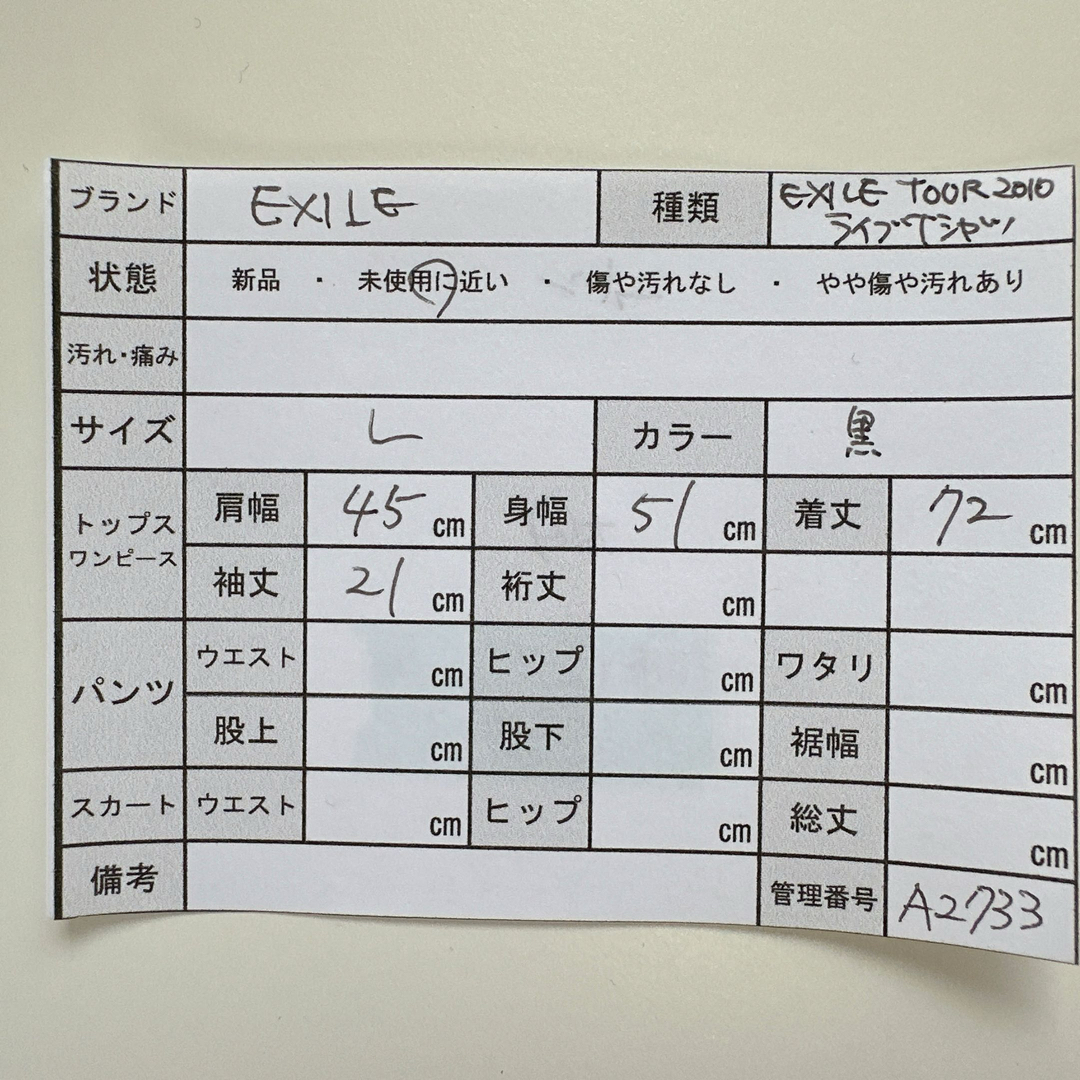 ブランド EXILE 種類 EXILE TOUR 2010
ライブTシャツ
状態 新品 ・ 未使用に近い ・ 傷や汚れなし ・ やや傷や汚れあり
汚れ・痛み
サイズ L カラー 黒
トップス
ワンピース
肩幅 45 cm 身幅 51 cm 着丈 72 cm
袖丈 21 cm 裄丈 cm
パンツ
ウエスト cm ヒップ cm ワタリ cm
股上 cm 股下 cm 裾幅 cm
スカート ウエスト cm ヒップ cm 総丈 cm
備考 管理番号 A2733